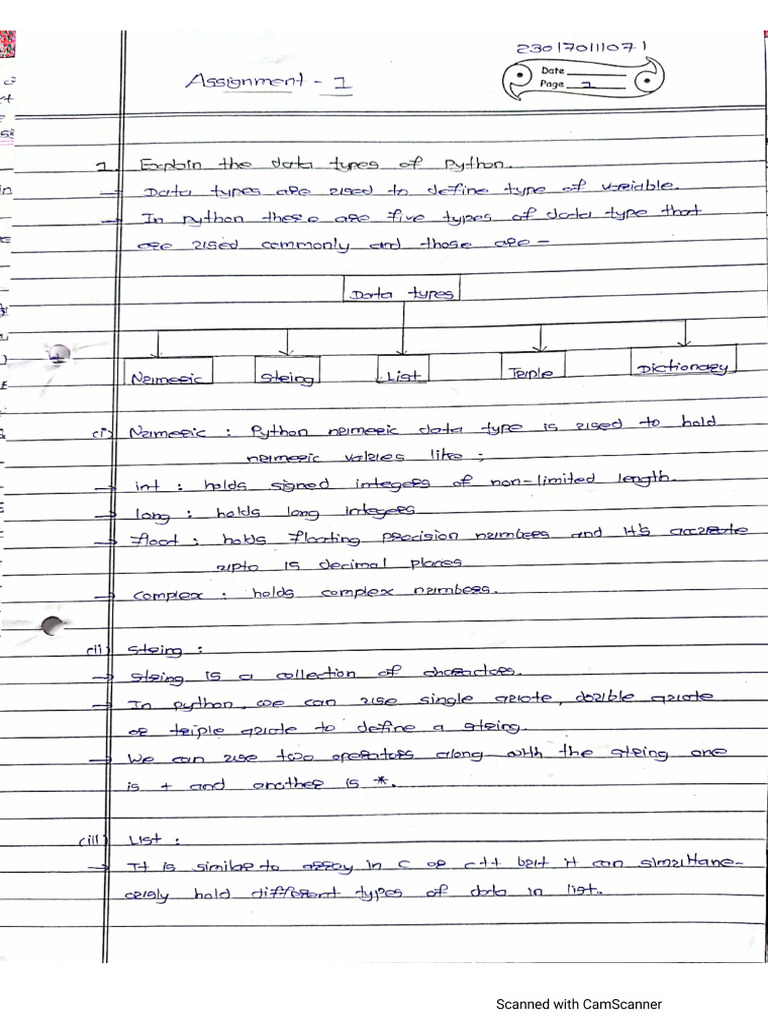 230170111071
Assignment - 1
Date
Page 1
1. Explain the data types of python.
→ Data types are used to define type of variable.
→ In python there are five types of data type that
are used commonly and those are -
Data types
Numeric String List Tuple Dictionary
(i) Numeric : Python numeric data type is used to hold
numeric values like ;
→ int : holds signed integers of non-limited length.
→ long : holds long integers
→ float : holds floating precision numbers and it's accurate
upto 15 decimal places
→ complex : holds complex numbers.
(ii) String :
→ String is a collection of characters.
→ In python, we can use single quote, double quote
or triple quote to define a string.
→ We can use two operators along with the string one
is + and another is *.
(iii) List :
→ It is similar to array in C or C++ but it can simultane-
ously hold different types of data in list.
Scanned with CamScanner